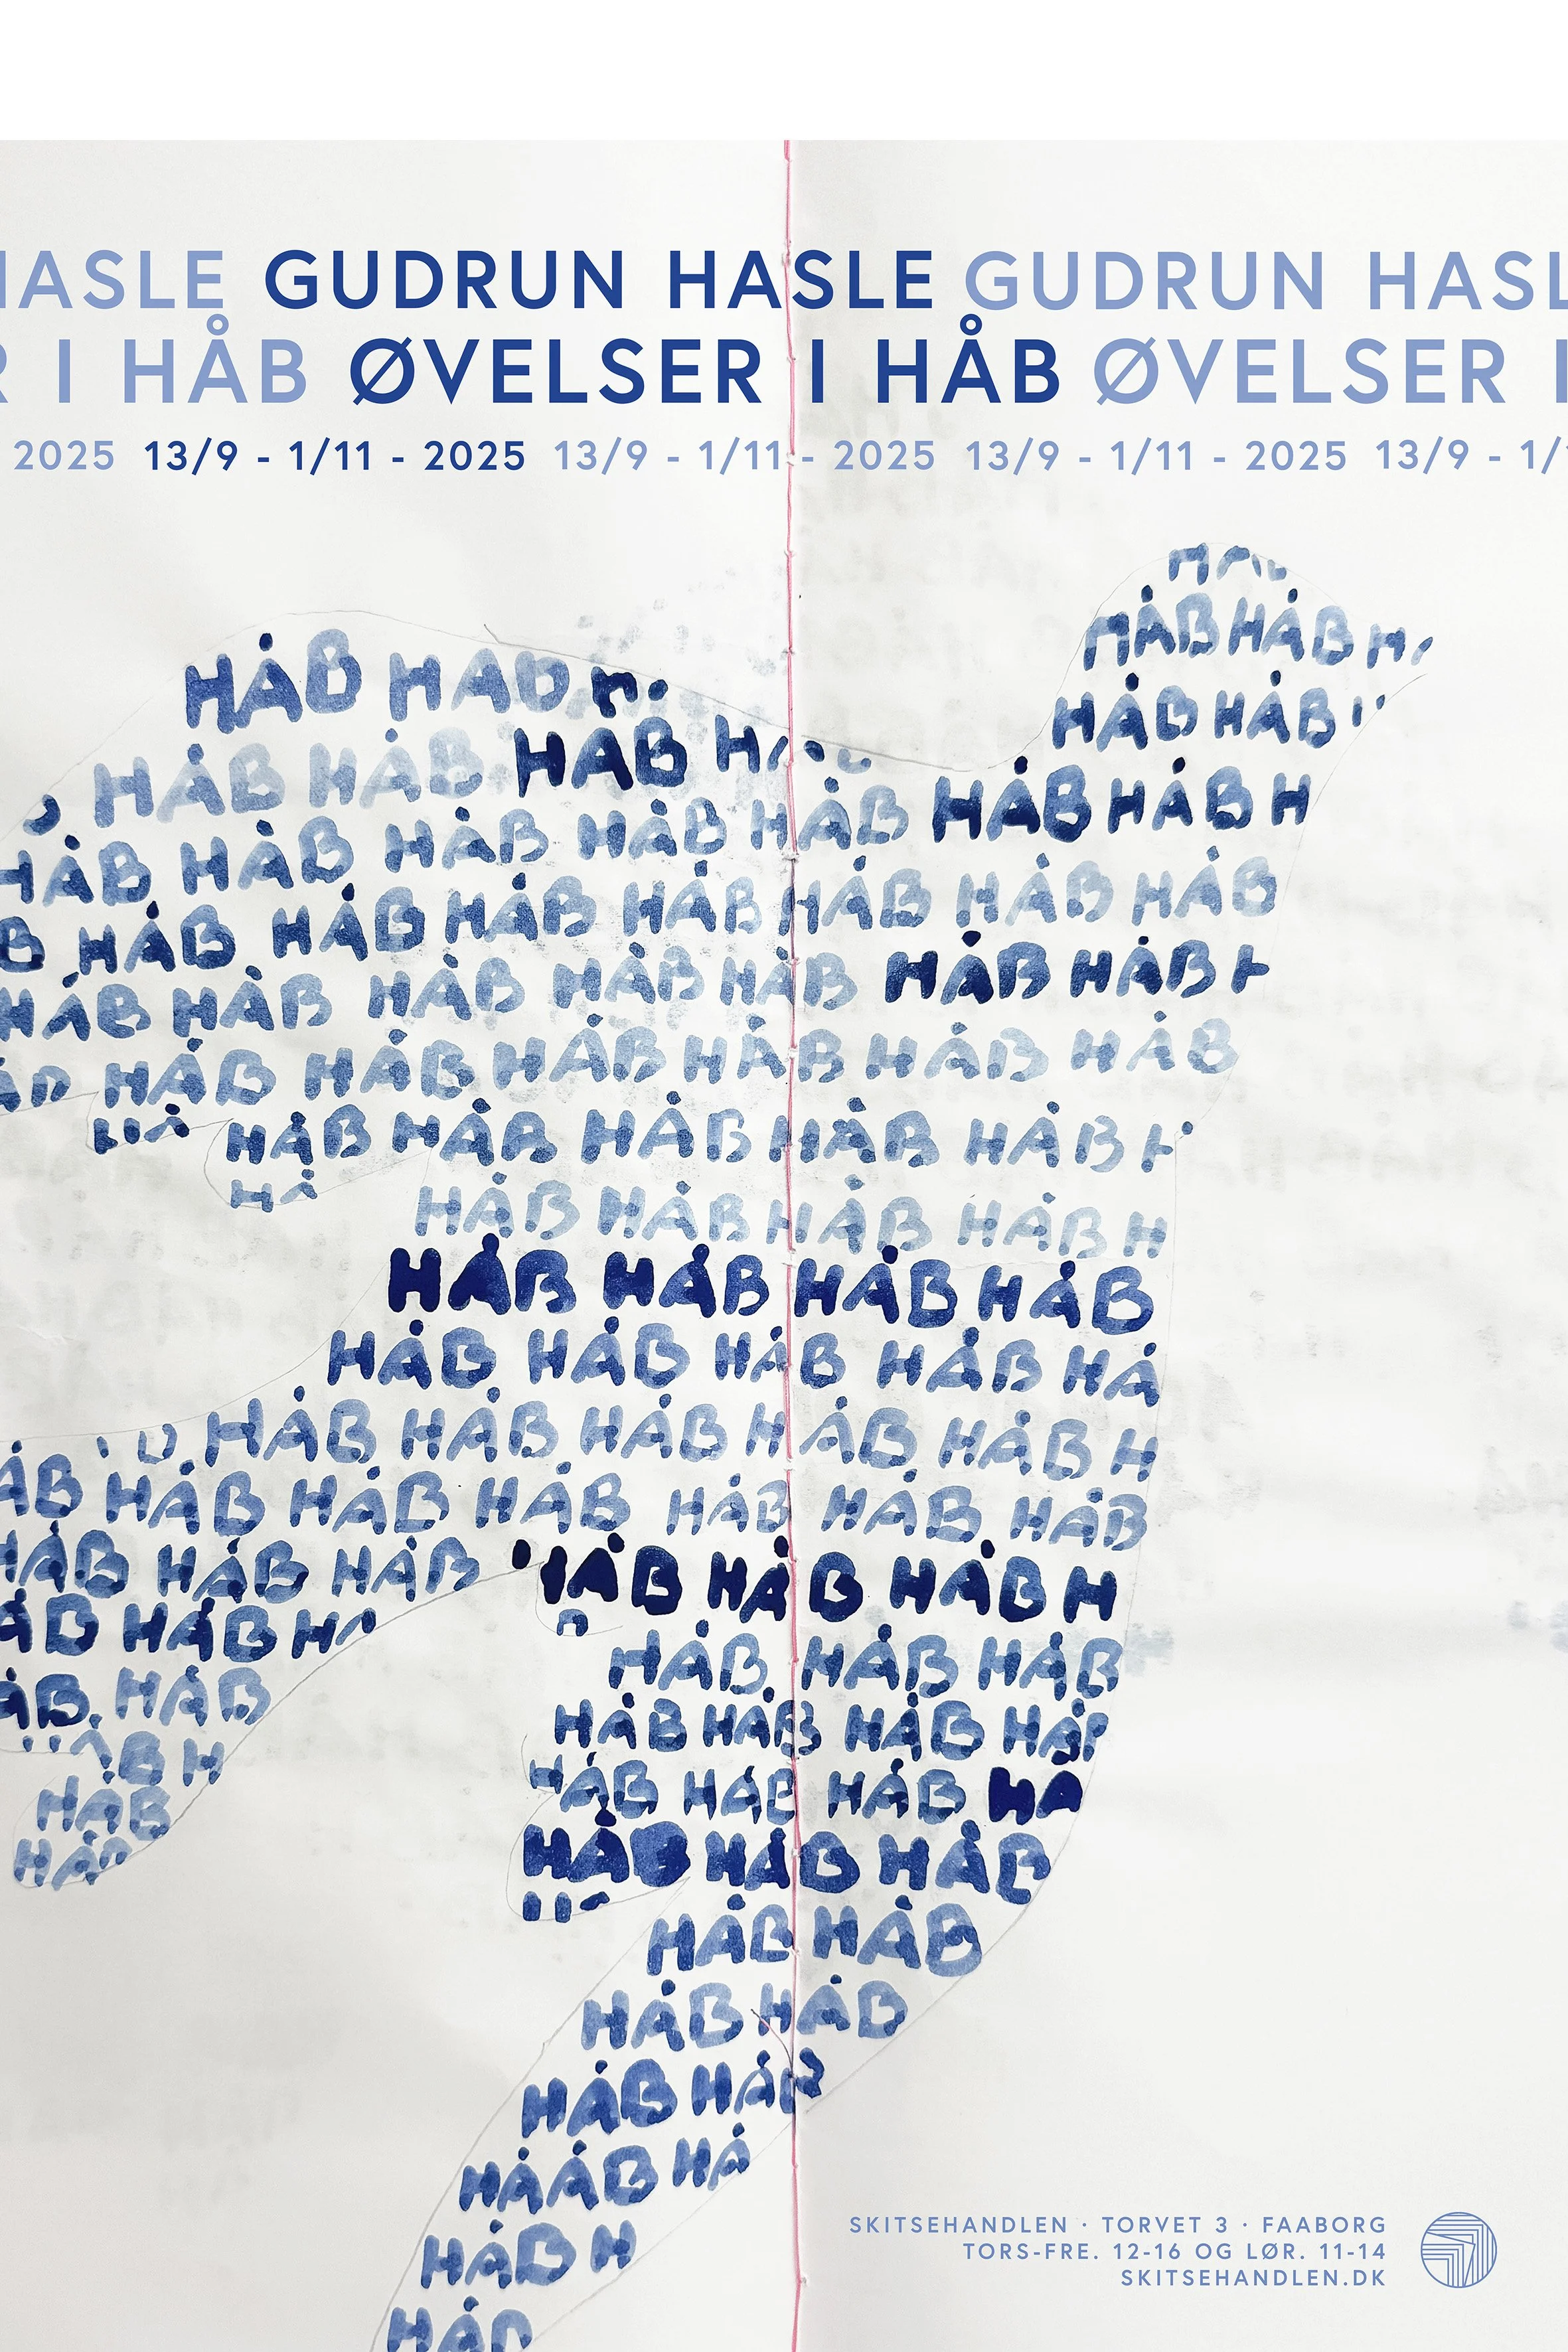 HASLE GUDRUN HASLE GUDRUN HASL
R I HÅB ØVELSER I HÅB ØVELSER I
2025 13/9 - 1/11 - 2025 13/9 - 1/11 - 2025 13/9 - 1/11 - 2025 13/9 - 1/1
HÅB HÅB
HÅB HÅB
HÅB HAB
HÅB HÅB HAB
HÅB HÅB H
HÅB HÅB HÅB HÅB HÅB
HÅB HÅB HÅB
B HÅB HÅB HÅB HÅB HÅB HÅB HÅB
HÅB HÅB HÅB HÅB HÅB HÅB HÅB
HÅB HÅB HÅB HÅB HÅB HÅB
HÅB HÅB HÅB HÅB HÅB
HÅ
HÅB HÅB HÅB HÅB H
HÅB HÅB HÅB HÅB
HÅB HÅB HÅB HÅB HÅ
HÅB HÅB HÅB HÅB HÅB H
ÅB HÅB HÅB HÅB HÅB HÅB HÅB
HÅB HÅB HÅB HÅB HÅB HÅB H
ÅB HÅB H
HÅB HÅB HÅB
ÅB HÅB
HÅB HÅB HÅB
ÅB H
HÅB HÅB HÅB HÅ
HÅB
HÅB HÅB HÅB
HÅ
HÅB HÅB
HÅB HÅB
HÅB HÅB
HÅÅB HÅ
HÅB H
HÅB
SKITSEHANDLEN · TORVET 3 · FAABORG
TORS-FRE. 12-16 OG LØR. 11-14
SKITSEHANDLEN.DK